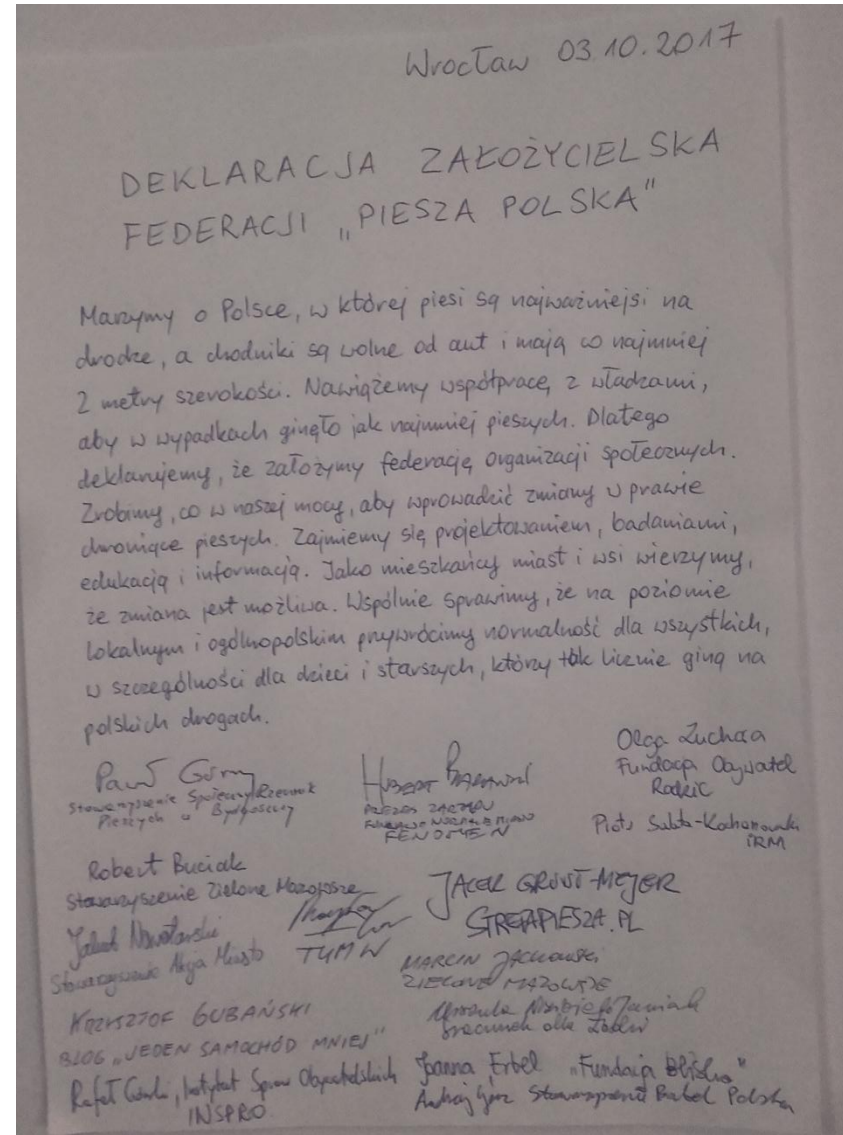 Wrocław 03.10.2017
DEKLARACJA ZAŁOŻYCIELSKA
FEDERACJI „PIESZA POLSKA"
Marzymy o Polsce, w której piesi są najważniejsi na
drodze, a chodniki są wolne od aut i mają co najmniej
2 metry szerokości. Nawiążemy współpracę z władzami,
aby w wypadkach ginęło jak najmniej pieszych. Dlatego
deklarujemy, że założymy federację organizacji społecznych.
Zrobimy, co w naszej mocy, aby wprowadzić zmiany w prawie
chroniące pieszych. Zajmiemy się projektowaniem, badaniami,
edukacją i informacją. Jako mieszkańcy miast i wsi wierzymy,
że zmiana jest możliwa. Wspólnie sprawimy, że na poziomie
lokalnym i ogólnopolskim przywrócimy normalność dla wszystkich,
w szczególności dla dzieci i starszych, którzy tak licznie giną na
polskich drogach.
Paweł Górny
Stowarzyszenie Społeczny Rzecznik
Pieszych w Bydgoszczy
HUBERT
PREZES ZARZĄDU
FENOMEN
Olga
Fundacja Obywatel
Rodzic
Piotr
IRM
Robert Buciak
Stowarzyszenie Zielone Mazowsze
JACEK GRUNT-MEJER
STREFAPIESZA.PL
Jakub Nowotarski
Stowarzyszenie Akcja Miasto
TUMW
MARCIN JACKOWSKI
ZIELONE MAZOWSZE
KRZYSZTOF GUBAŃSKI
BLOG „JEDEN SAMOCHÓD MNIEJ"
Urszula
dla Łodzi
Rafał Górski, Instytut Spraw Obywatelskich
INSPRO
Joanna Erbel „Fundacja Blisko"
Andrzej Stowarzyszenie Polska